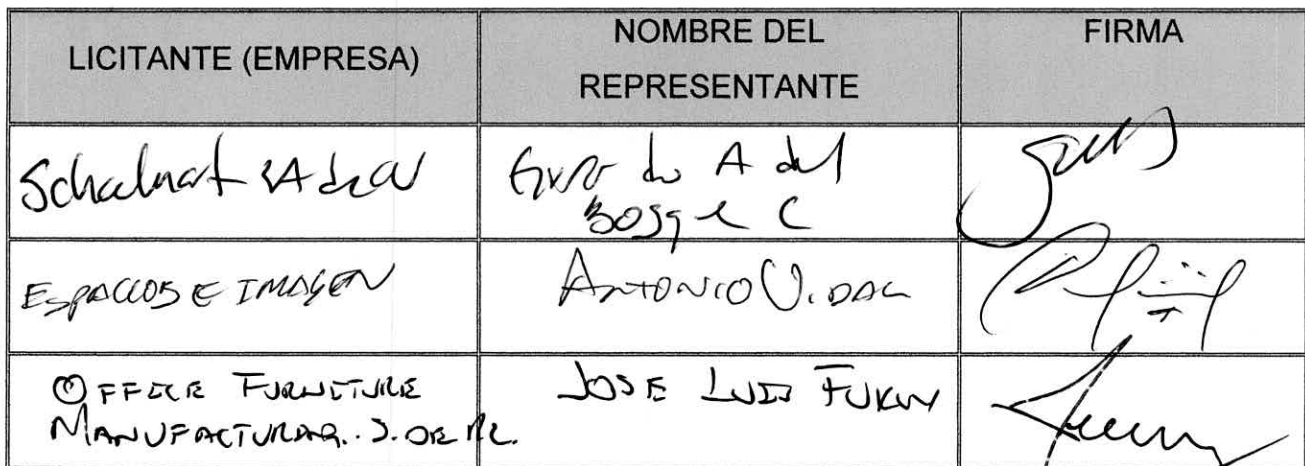 LICITANTE (EMPRESA)
NOMBRE DEL
REPRESENTANTE
FIRMA
SA de CV
A del
Bosque C
ESPACIOS E IMAGEN
ANTONIO VIDAL
OFFICE FURNITURE
MANUFACTURAR. S. DE RL.
JOSE LUIS